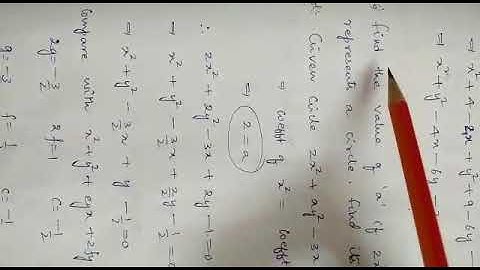 ⇒ x² + 4 - 2x + y² + 9 - 6y
⇒ x² + y² - 4x - 6y
find the value of 'a' if 2x
represents a circle. find its
Given Circle 2x² + ay² - 3x
⇒ coefft of x² = coefft
⇒ 2 = a
∴ 2x² + 2y² - 3x + 2y - 1 = 0
⇒ x² + y² - 3/2 x + 2/2 y - 1/2 = 0
⇒ x² + y² - 3/2 x + y - 1/2 = 0
Compare with x² + y² + 2gx + 2fy
2g = -3/2 2f = 1 c = -1/2
g = -3 f = 1 c = -1